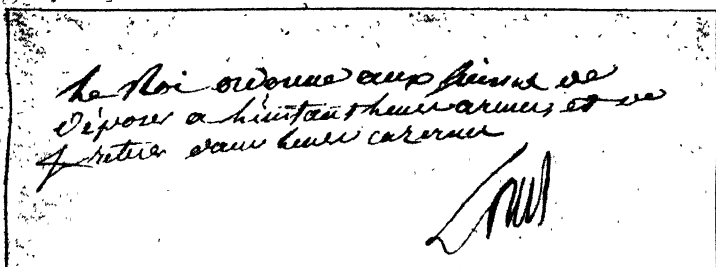 Le Roi ordonne aux Suisses de
déposer a linstant leurs armes, et de
se retirer dans leurs casernes
Louis